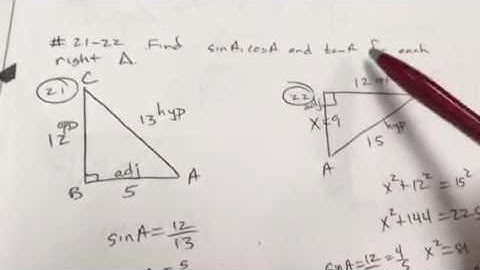 #21-22 Find sinA, cosA and tanA F each
right Δ.
21
C
12 opp
13 hyp
B
adj
5
A
sinA = 12/13
5
22
12
adj
x=9
hyp
15
A
x²+12²=15²
x²+144=225
x²=81
sinA=12/15=4/5